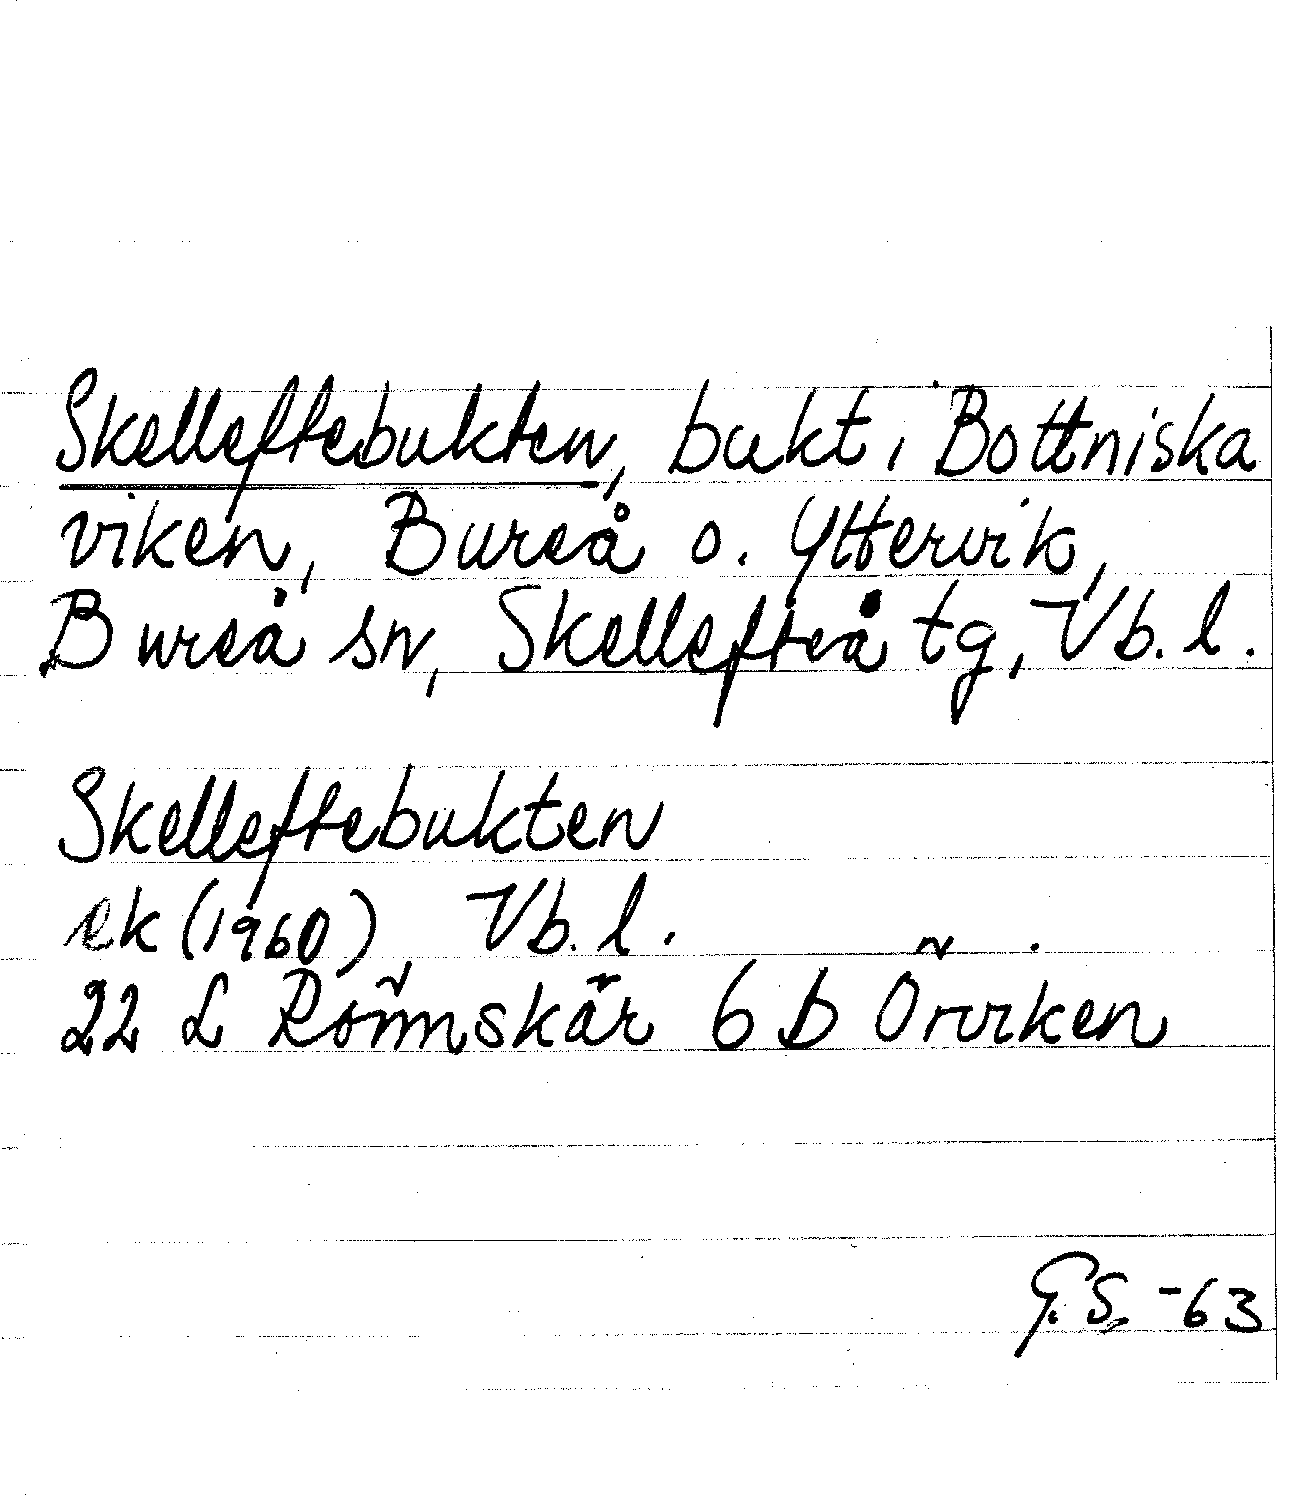 Skelleftebukten, bukt i Bottniska
viken, Bureå o. Yttervik,
Bureå sn, Skellefteå tg, Vb. l.
Skelleftebukten
ek (1960) Vb. l.
22 L Rönnskär 6 b Örviken
G. S. -63